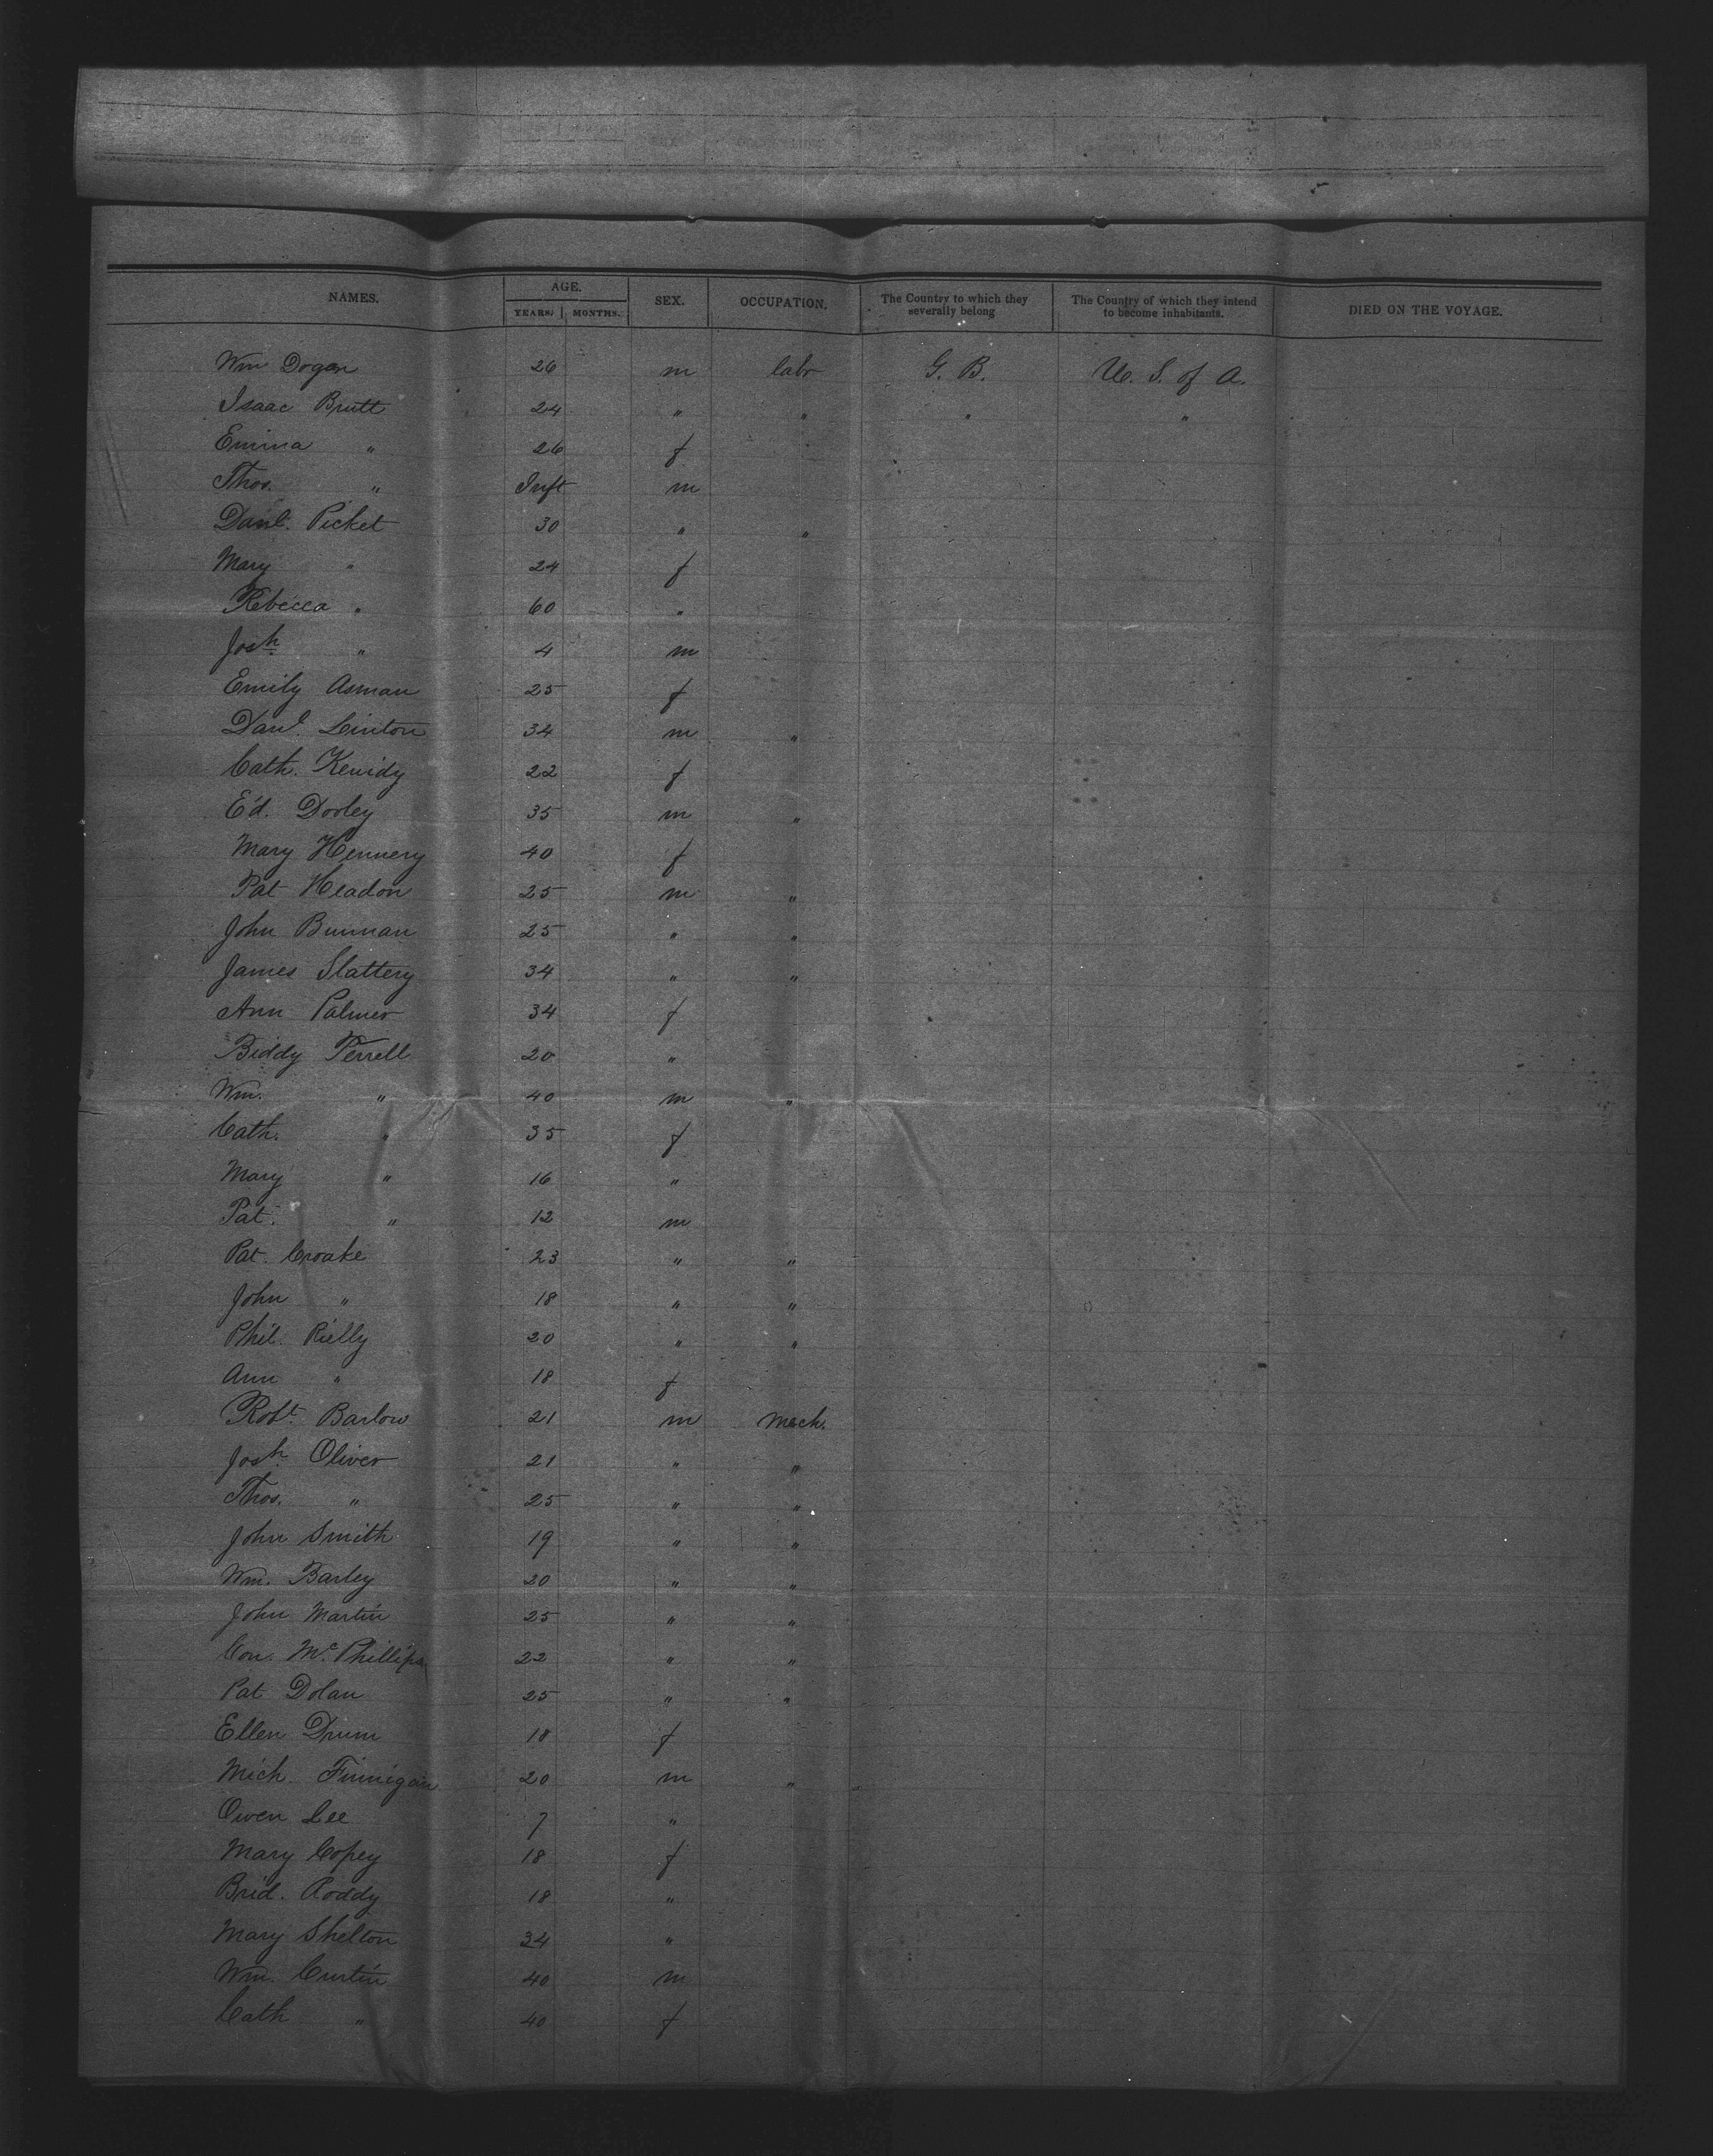 NAMES. AGE. YEARS. MONTHS. SEX. OCCUPATION. The Country to which they severally belong The Country of which they intend to become inhabitants. DIED ON THE VOYAGE.
Wm Dogan 26 m labr G. B. U. S. of A.
Isaac Brutt 24 " " " "
Emma " 26 f
Thos. " Inft m
Danl. Picket 30 " "
Mary " 24 f
Rebecca " 60 "
Josh " 4 m
Emily Asman 25 f
Danl. Linton 34 m "
Cath. Kenidy 22 f
Ed. Dooley 35 m "
Mary Hennery 40 f
Pat Headon 25 m "
John Bunnan 25 " "
James Slattery 34 " "
Ann Palmer 34 f
Biddy Terrell 20 "
Wm. " 40 m "
Cath. " 35 f
Mary " 16 "
Pat. " 12 m
Pat. Croake 23 " "
John " 18 " "
Phil. Rielly 20 " "
Ann " 18 f
Robt. Barlow 21 m Mech.
Josh. Oliver 21 " "
Thos. " 25 " "
John Smith 19 " "
Wm. Barley 20 " "
John Martin 25 " "
Con. McPhillips 22 " "
Pat Dolan 25 " "
Ellen Drum 18 f
Mich Finnigan 20 m "
Owen Lee 7 "
Mary Copey 18 f
Brid. Roddy 18 "
Mary Shelton 34 "
Wm. Curtin 40 m
Cath " 40 f